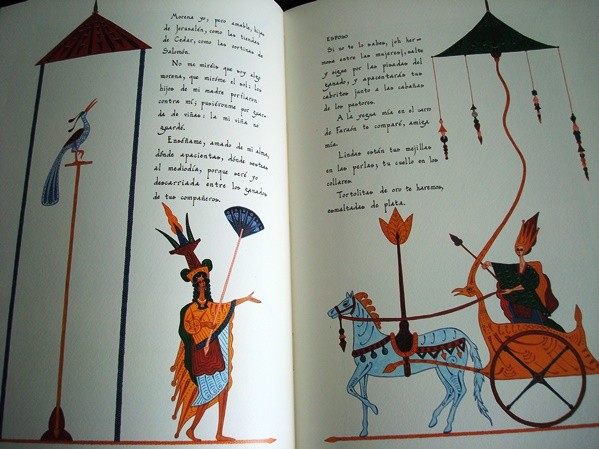 Morena yo, pero amable, hijas
de Jerusalén, como las tiendas
de Cedar, como las cortinas de
Salomón.
No me miréis que soy algo
morena, que miróme el sol: los
hijos de mi madre porfiaron
contra mí; pusiéronme por guar-
da de viñas: la mi viña no
guardé.
Enséñame, amado de mi alma,
dónde apacientas, dónde sesteas
al mediodía, porque seré yo
descarriada entre los ganados
de tus compañeros.
ESPOSO
Si no te lo sabes, ¡oh her-
mosa entre las mujeres!, salte
y sigue por las pisadas del
ganado, y apacentarás tus
cabritos junto a las cabañas
de los pastores.
A la yegua mía en el carro
de Faraón te comparé, amiga
mía.
Lindas están tus mejillas
en las perlas, tu cuello en los
collares.
Tortolitas de oro te haremos,
esmaltadas de plata.